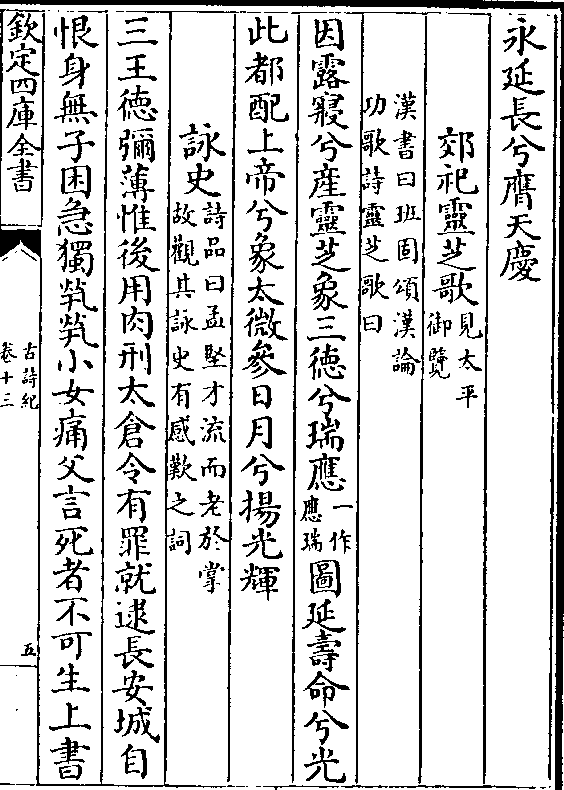 永延長兮膺天慶
郊祀靈芝歌見太平御覽
漢書曰班固頌漢論功歌詩靈芝歌曰
因露寢兮產靈芝象三德兮瑞應一作應瑞圖延壽命兮光
此都配上帝兮象太微參日月兮揚光輝
詠史詩品曰孟堅才流而老於掌故觀其詠史有感歎之詞
三王德彌薄惟後用肉刑太倉令有罪就逮長安城自
恨身無子困急獨煢煢小女痛父言死者不可生上書
欽定四庫全書
古詩紀
卷十三
五